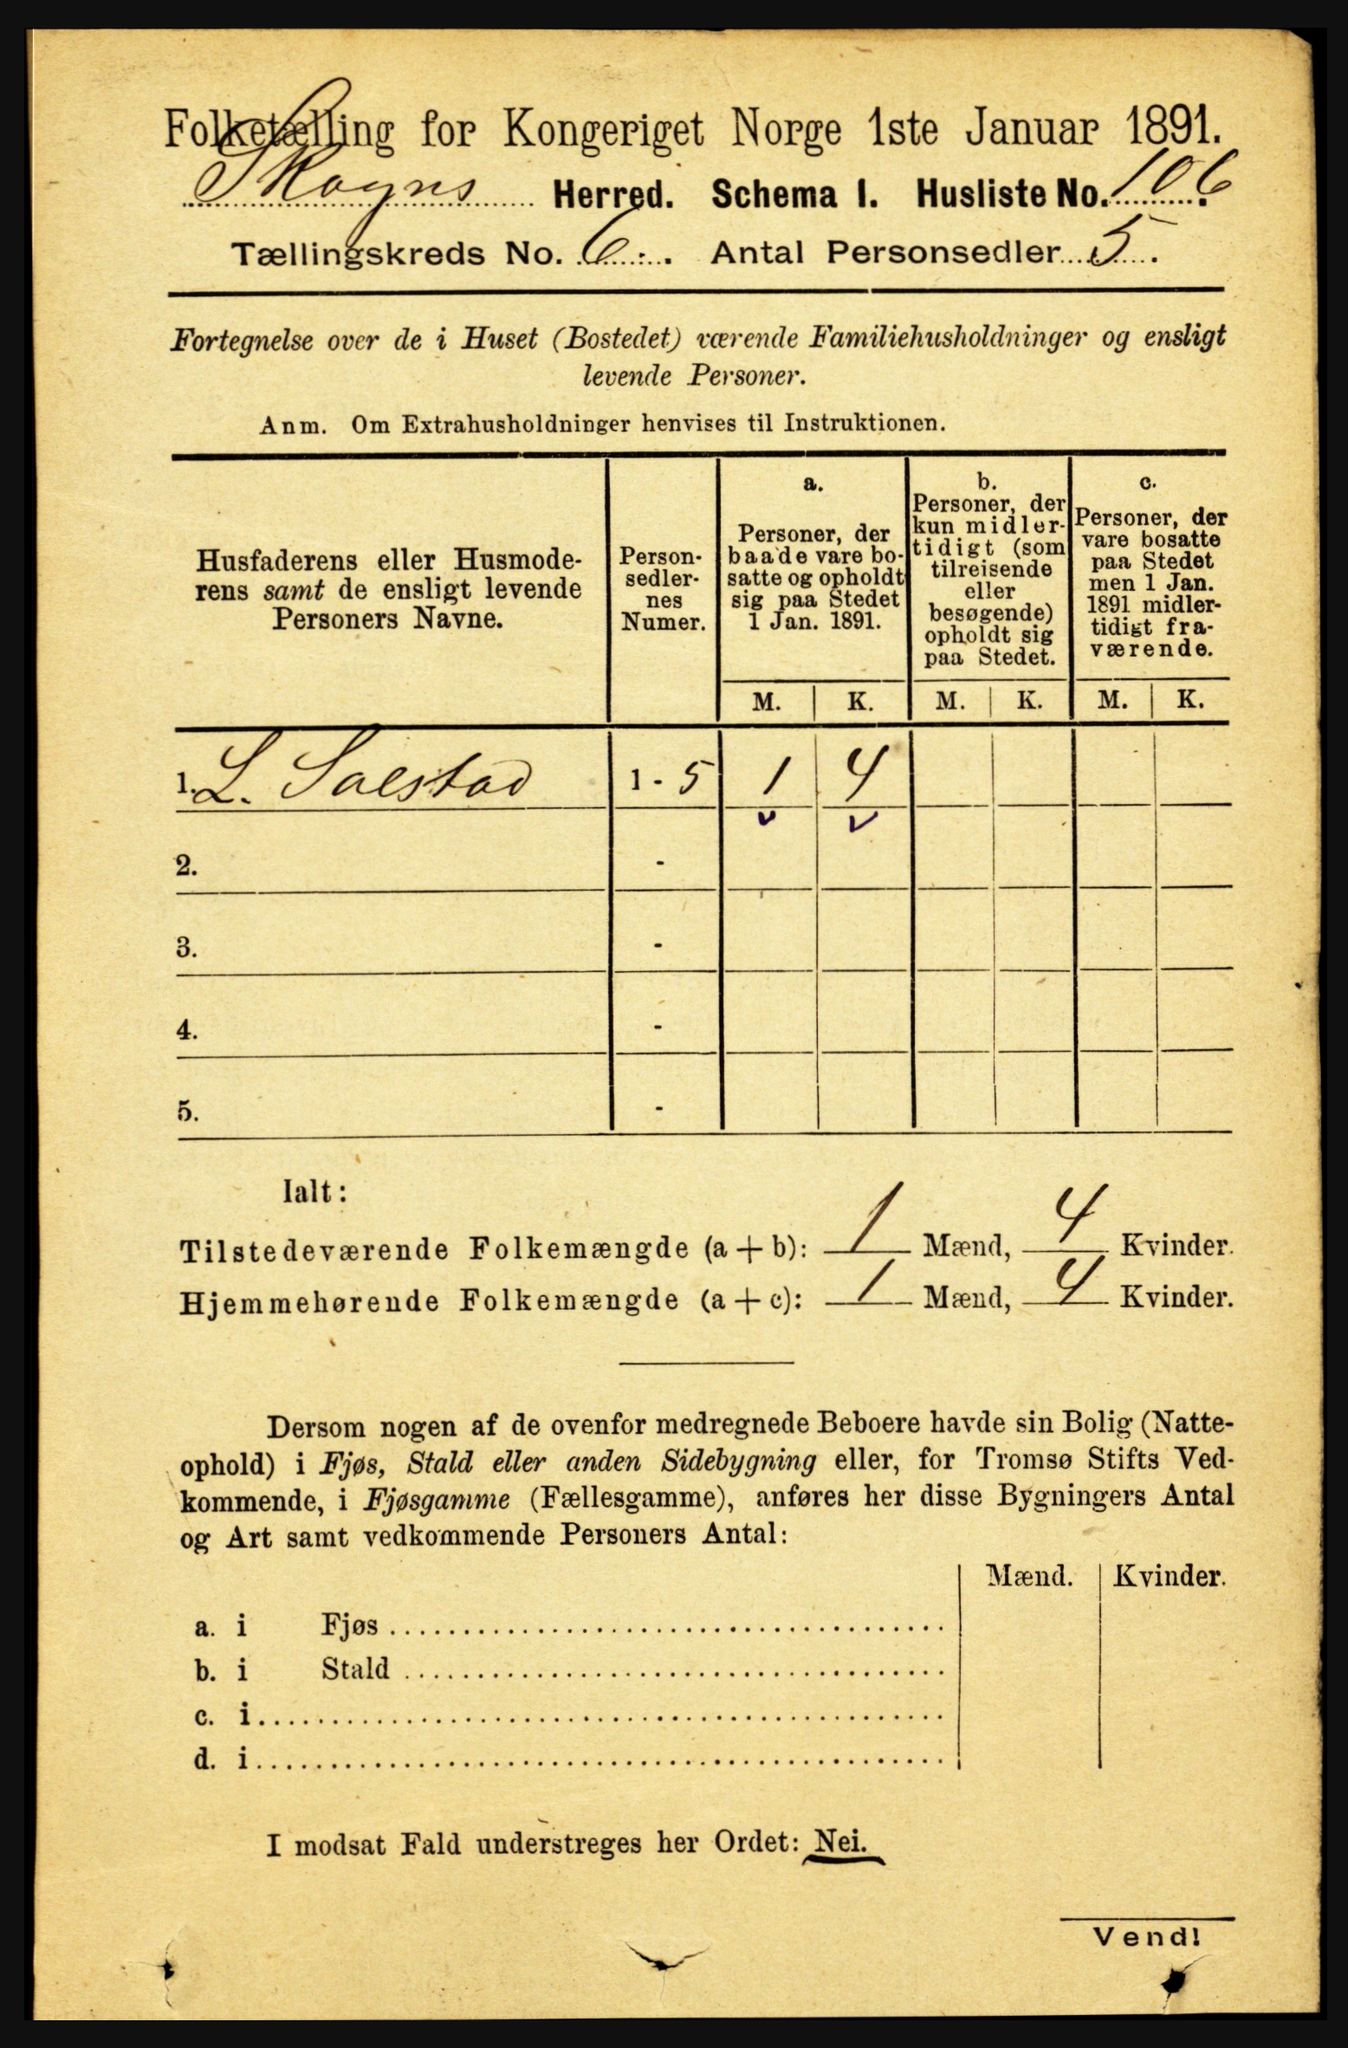 Folketælling for Kongeriget Norge 1ste Januar 1891.
Skogns Herred. Schema I. Husliste No. 106.
Tællingskreds No. 6. Antal Personsedler 5.
Fortegnelse over de i Huset (Bostedet) værende Familiehusholdninger og ensligt
levende Personer.
Anm. Om Extrahusholdninger henvises til Instruktionen.
Husfaderens eller Husmode-
rens samt de ensligt levende
Personers Navne.
Person-
sedler-
nes
Numer.
a.
Personer, der
baade vare bo-
satte og opholdt
sig paa Stedet
1 Jan. 1891.
b.
Personer, der
kun midler-
tidigt (som
tilreisende
eller
besøgende)
opholdt sig
paa Stedet.
c.
Personer, der
vare bosatte
paa Stedet
men 1 Jan.
1891 midler-
tidigt fra-
værende.
M. K. M. K. M. K.
1. L. Salstad 1 - 5 1 4
2. -
3. -
4. -
5. -
Ialt:
Tilstedeværende Folkemængde (a + b): 1 Mænd, 4 Kvinder.
Hjemmehørende Folkemængde (a + c): 1 Mænd, 4 Kvinder.
Dersom nogen af de ovenfor medregnede Beboere havde sin Bolig (Natte-
ophold) i Fjøs, Stald eller anden Sidebygning eller, for Tromsø Stifts Ved-
kommende, i Fjøsgamme (Fællesgamme), anføres her disse Bygningers Antal
og Art samt vedkommende Personers Antal:
Mænd. Kvinder.
a. i Fjøs
b. i Stald
c. i
d. i
I modsat Fald understreges her Ordet: Nei.
Vend!